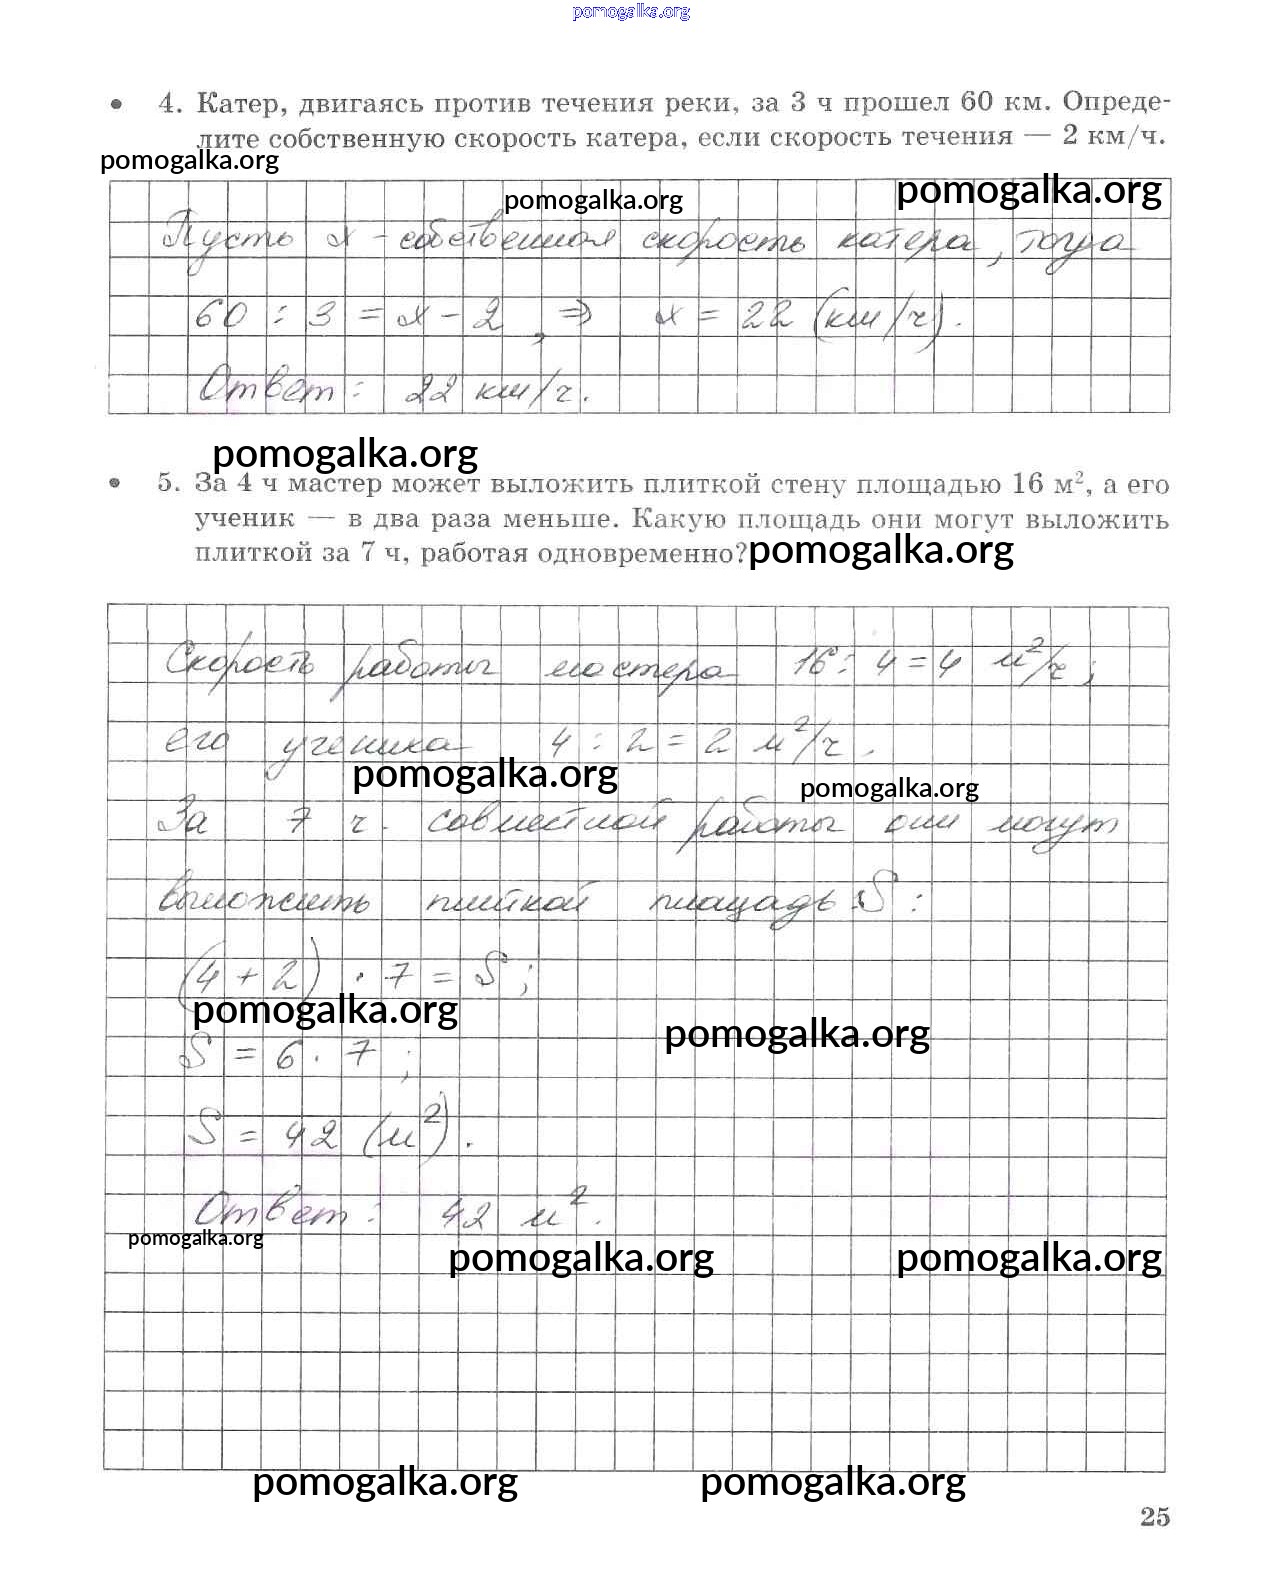 pomogalka.org
• 4. Катер, двигаясь против течения реки, за 3 ч прошел 60 км. Опреде-
лите собственную скорость катера, если скорость течения — 2 км/ч.
pomogalka.org
pomogalka.org
pomogalka.org
Пусть x - собственная скорость катера, тогда
60 : 3 = x - 2, ⇒ x = 22 (км/ч).
Ответ: 22 км/ч.
pomogalka.org
• 5. За 4 ч мастер может выложить плиткой стену площадью 16 м², а его
ученик — в два раза меньше. Какую площадь они могут выложить
плиткой за 7 ч, работая одновременно?
pomogalka.org
Скорость работы мастера 16 : 4 = 4 м²/ч;
его ученика 4 : 2 = 2 м²/ч.
pomogalka.org
pomogalka.org
За 7 ч. совместной работы они могут
выложить плиткой площадь S:
(4 + 2) · 7 = S;
pomogalka.org
pomogalka.org
S = 6 · 7;
S = 42 (м²).
Ответ: 42 м².
pomogalka.org
pomogalka.org
pomogalka.org
pomogalka.org
pomogalka.org
25